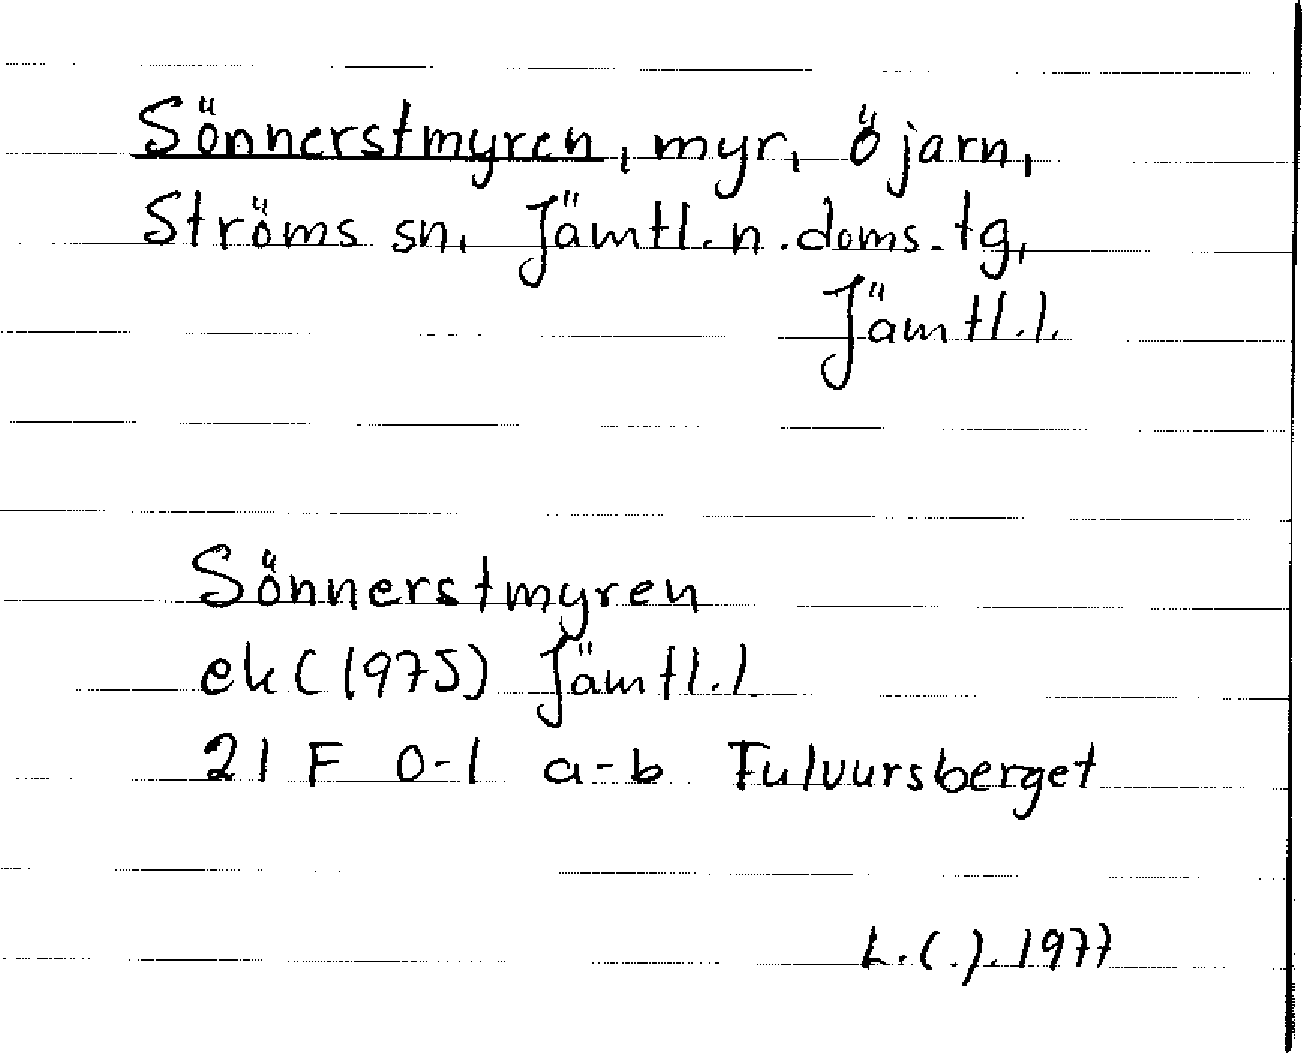 Sönnerstmyren, myr, Öjarn,
Ströms sn, Jämtl. n. doms. tg,
Jämtl. l.
Sönnerstmyren
ek (1975) Jämtl. l.
21 F 0-1 a-b Fulvursberget
L.(.). 1977